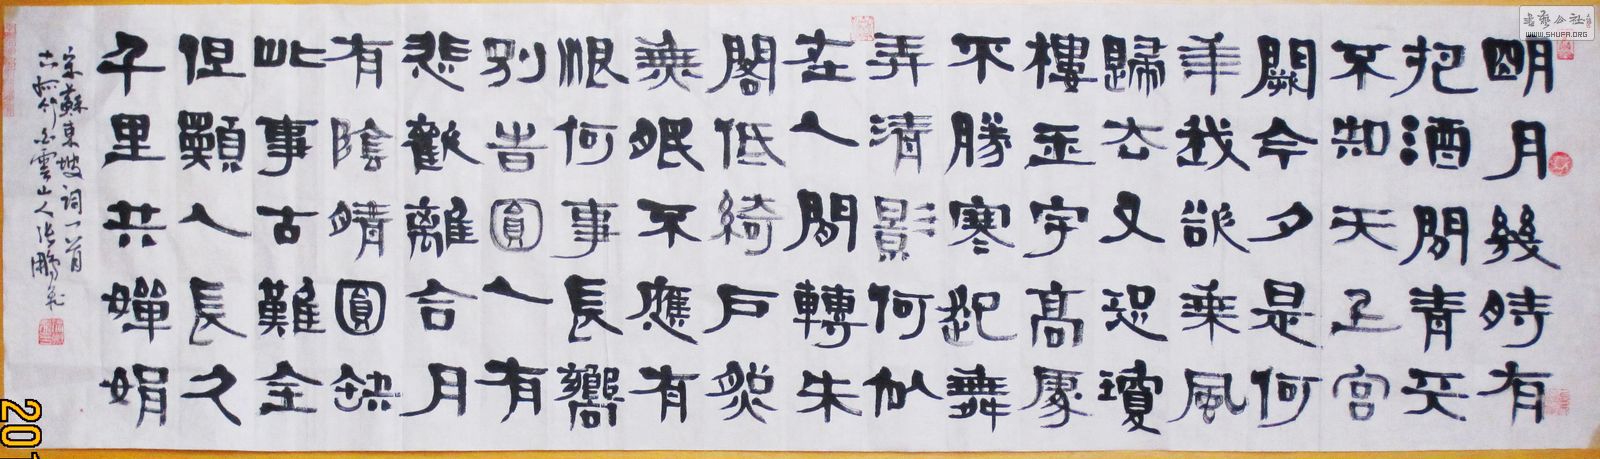 明月幾時有
把酒問青天
不知天上宮
闕今夕是何
年我欲乘風
歸去又恐瓊
樓玉宇高處
不勝寒起舞
弄清影何似
在人間轉朱
閣低綺戶照
無眠不應有
恨何事長嚮
别旹圓人有
悲歡離合月
有陰晴圓缺
此事古難全
但願人長久
千里共嬋娟
宋蘇東坡詞一首
雲山人張鵬
WWW.SHUFA.ORG
20